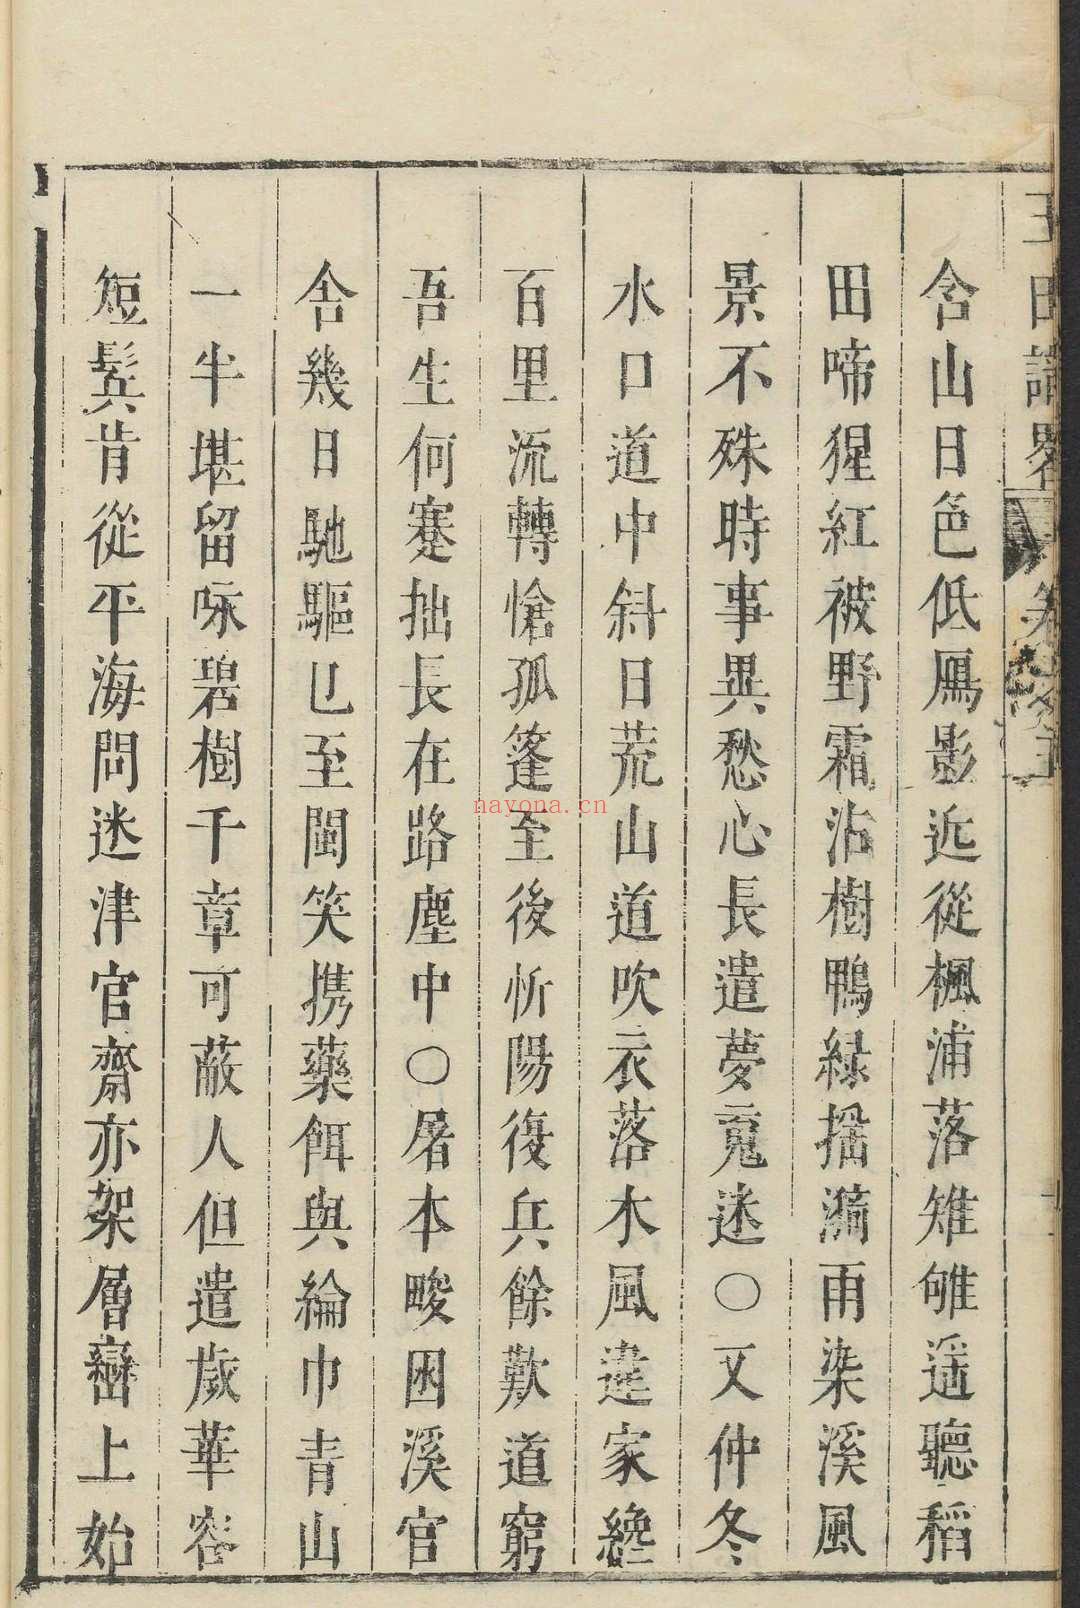 含山日色低鴈影近從楓浦落雉雊遥聽稻
田啼猩紅被野霜沾樹鴨緑揺漪雨染溪風
景不殊時事異愁心長遣夢䰟迷○又仲冬
水口道中斜日荒山道吹衣落木風違家纔
百里流轉愴孤篷至後忻陽復兵餘歎道窮
吾生何蹇拙長在路塵中○屠本畯困溪官
舍幾日馳驅已至閩笑携藥餌與綸巾青山
一半堪留咏碧樹千章可蔽人但遣歲華容
短鬂肯從平海問迷津官齋亦架層巒上始
nayona.cn